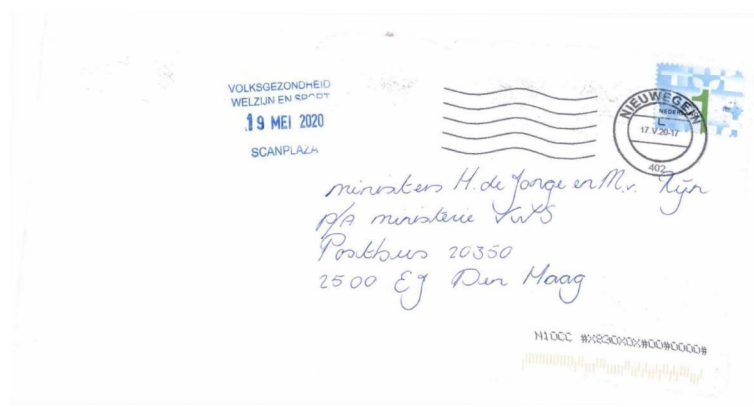 VOLKSGEZONDHEID
WELZIJN EN SPORT
19 MEI 2020
SCANPLAZA
NIEUWEGEIN
NEDERL
1
17.V.20-17
402
ministers H. de Jonge en M. v. Rijn
p/a ministerie VWS
Postbus 20350
2500 EJ Den Haag
N10CC #X830X0X#00#0000#